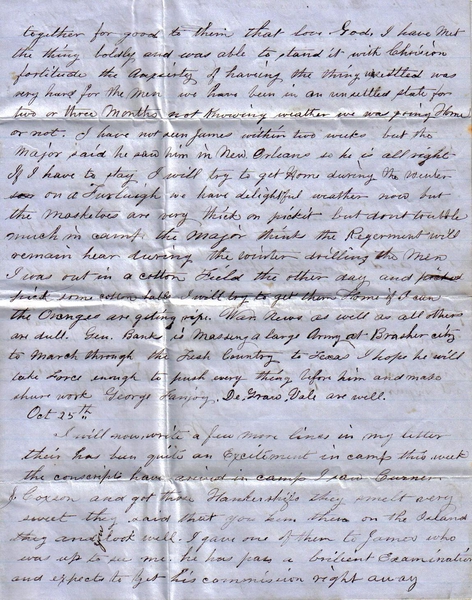 together for good to them that love God. I have met
the thing boldly and was able to stand it with Chrision
fortitude the anxiety of haveing the thing unsettled was
very hard for the men we have been in an unsettled state for
two or three Months not knowing weather we was going Home
or not. I have not seen James within two weeks but the
Major said he saw him in New Orleans so he is all right
If I have to stay I will try to get Home during the Winter
on a Furleigh we have delightful weather now but
the Masketoes are very thick on picket but dont trubble
much in camp the Major thinks the Regerment will
remain hear during the winter drilling the Men
I was out in a cotton Field the other day and
pick some cotton I will try to get them Home if I can
the Oranges are geting ripe. War News as well as all others
are dull. Gen. Banks is Massing a large Army at Brasher city
to March through the Tesh Country to Texas I hope he will
take Force enough to push every thing before him and make
shure work George De Graw, Vale are well.
Oct 25th
I will now write a few more lines in my letter
their has been quite an Excitement in camp this week
the conscripts have arived in camp I saw
J. Coxson and got those Hankerchifs they smelt very
sweet they said that you him them on the Island
they and look well I gave one of them to James who
was up to see me. he has pass a brilient Examination
and expects to get his commission right away